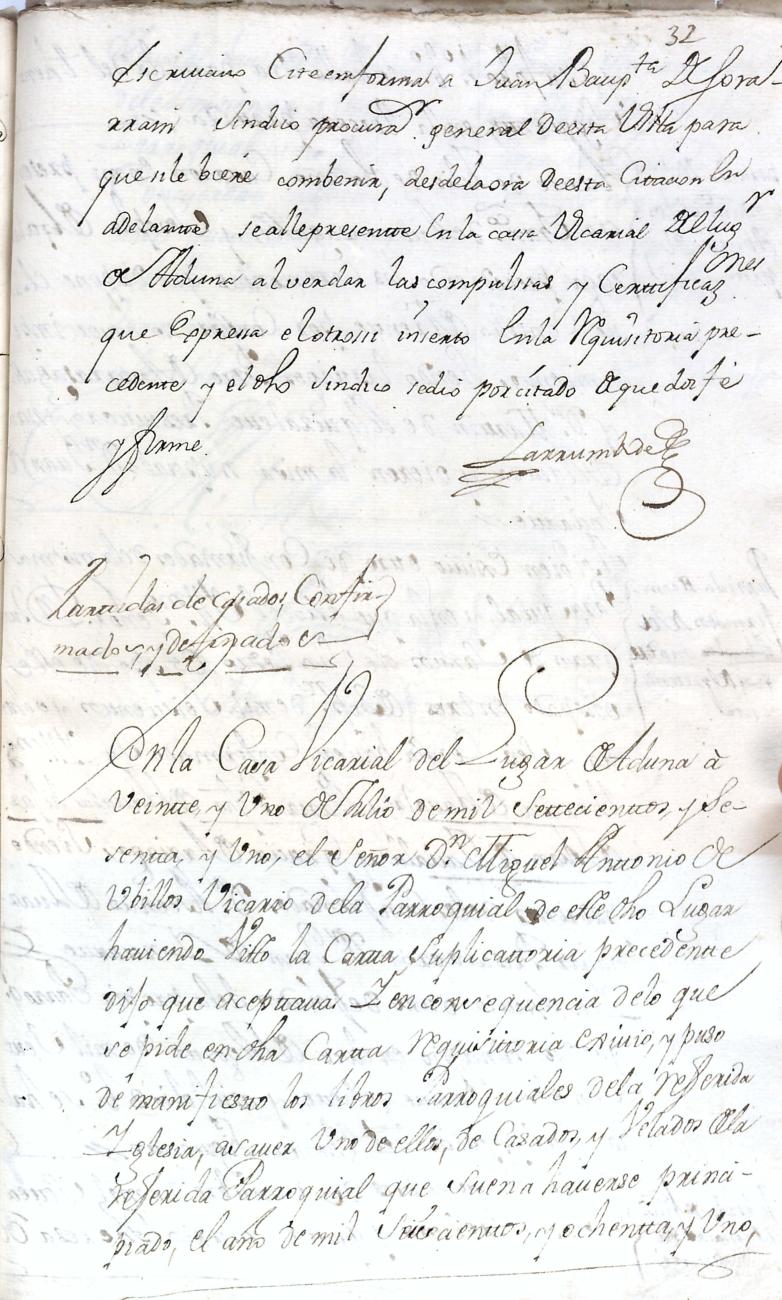 32
Escriuano Cite en forma a Juan Baupta de Sora-
rrain Sindico procurador general de esta Villa para
que si le biene combenir, desde la ora de esta Citacion En
adelante se alle presente En la cassa Vicarial del lugr
de Aduna al verdar las compulssas y Certificaznes
que Expressa el otrossi inserto En la Requisitoria pre-
cedente y el dho Sindico se dio por citado de que doi fe
y firme.
Larrumbide
Partidas de casados, Confir-
mados, y de finados
En la Casa Vicarial del Lugar de Aduna à
Veintte, y Uno de Julio de mil Settecienttos, y Se-
sentta, y Uno, el Señor Dn Miguel Antonio de
Ubillos Vicario dela Parroquial de este dho Lugar
hauiendo Visto la Cartta Suplicattoria precedentte
dijo que acepttaua. Y en consequencia delo que
se pide en dha Cartta Requisittoria exiuio, y puso
de manifiestto los libros Parroquiales dela Referida
Iglesia, asauer Uno de ellos, de Casados, y Velados de la
Referida Parroquial que Suena hauerse princi-
piado, el año de mil Seiscienttos, y ochentta, y Uno,